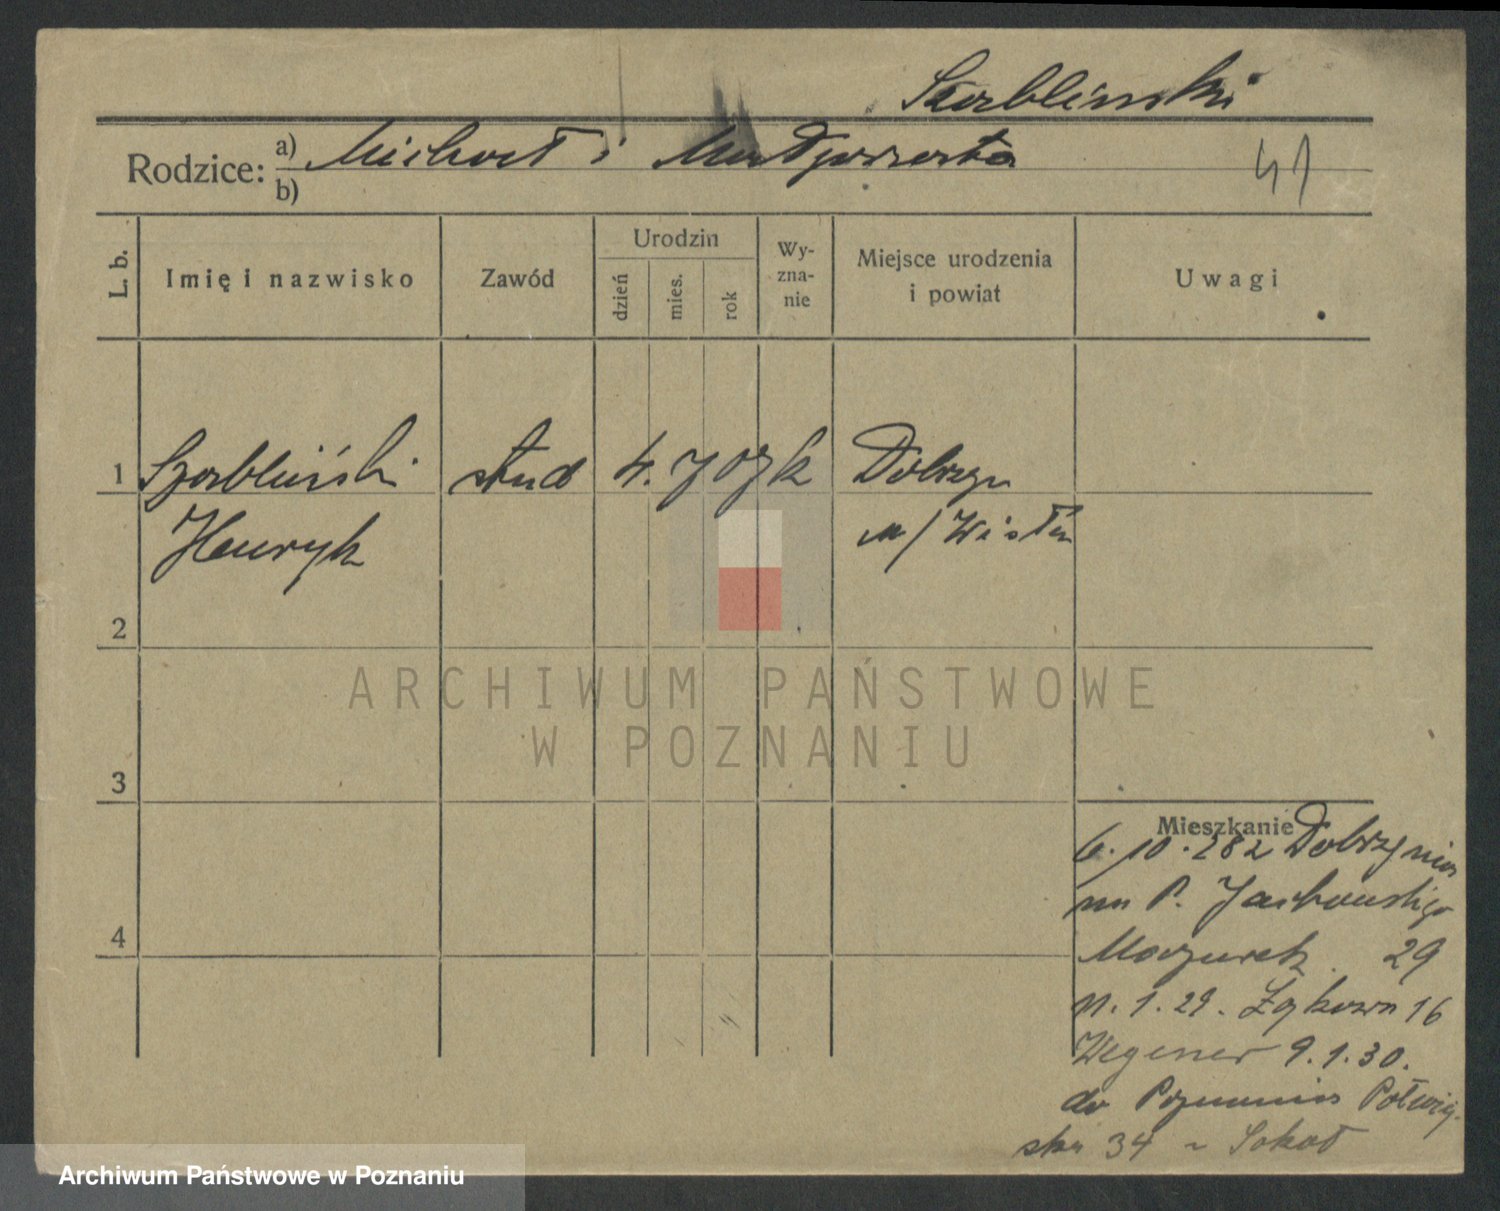 Szablinski
Rodzice: a) Michał i Małgorzata
b)
41
L. b.
Imię i nazwisko
Zawód
Urodzin
dzień
mies.
rok
Wy-
zna-
nie
Miejsce urodzenia
i powiat
Uwagi
1
Szabliński stud 4. 7 07 k Dobrzyń
Henryk n/Wisłą
2
3
4
Mieszkanie
6. 10. 282 Dobrzynia
na P.
Mazurek 29
11. 1. 29. Łąkowa 16
Wegener 9.1.30.
do Poznania Półwiej-
ska 34 Sokoł
ARCHIWUM PAŃSTWOWE
W POZNANIU
Archiwum Państwowe w Poznaniu